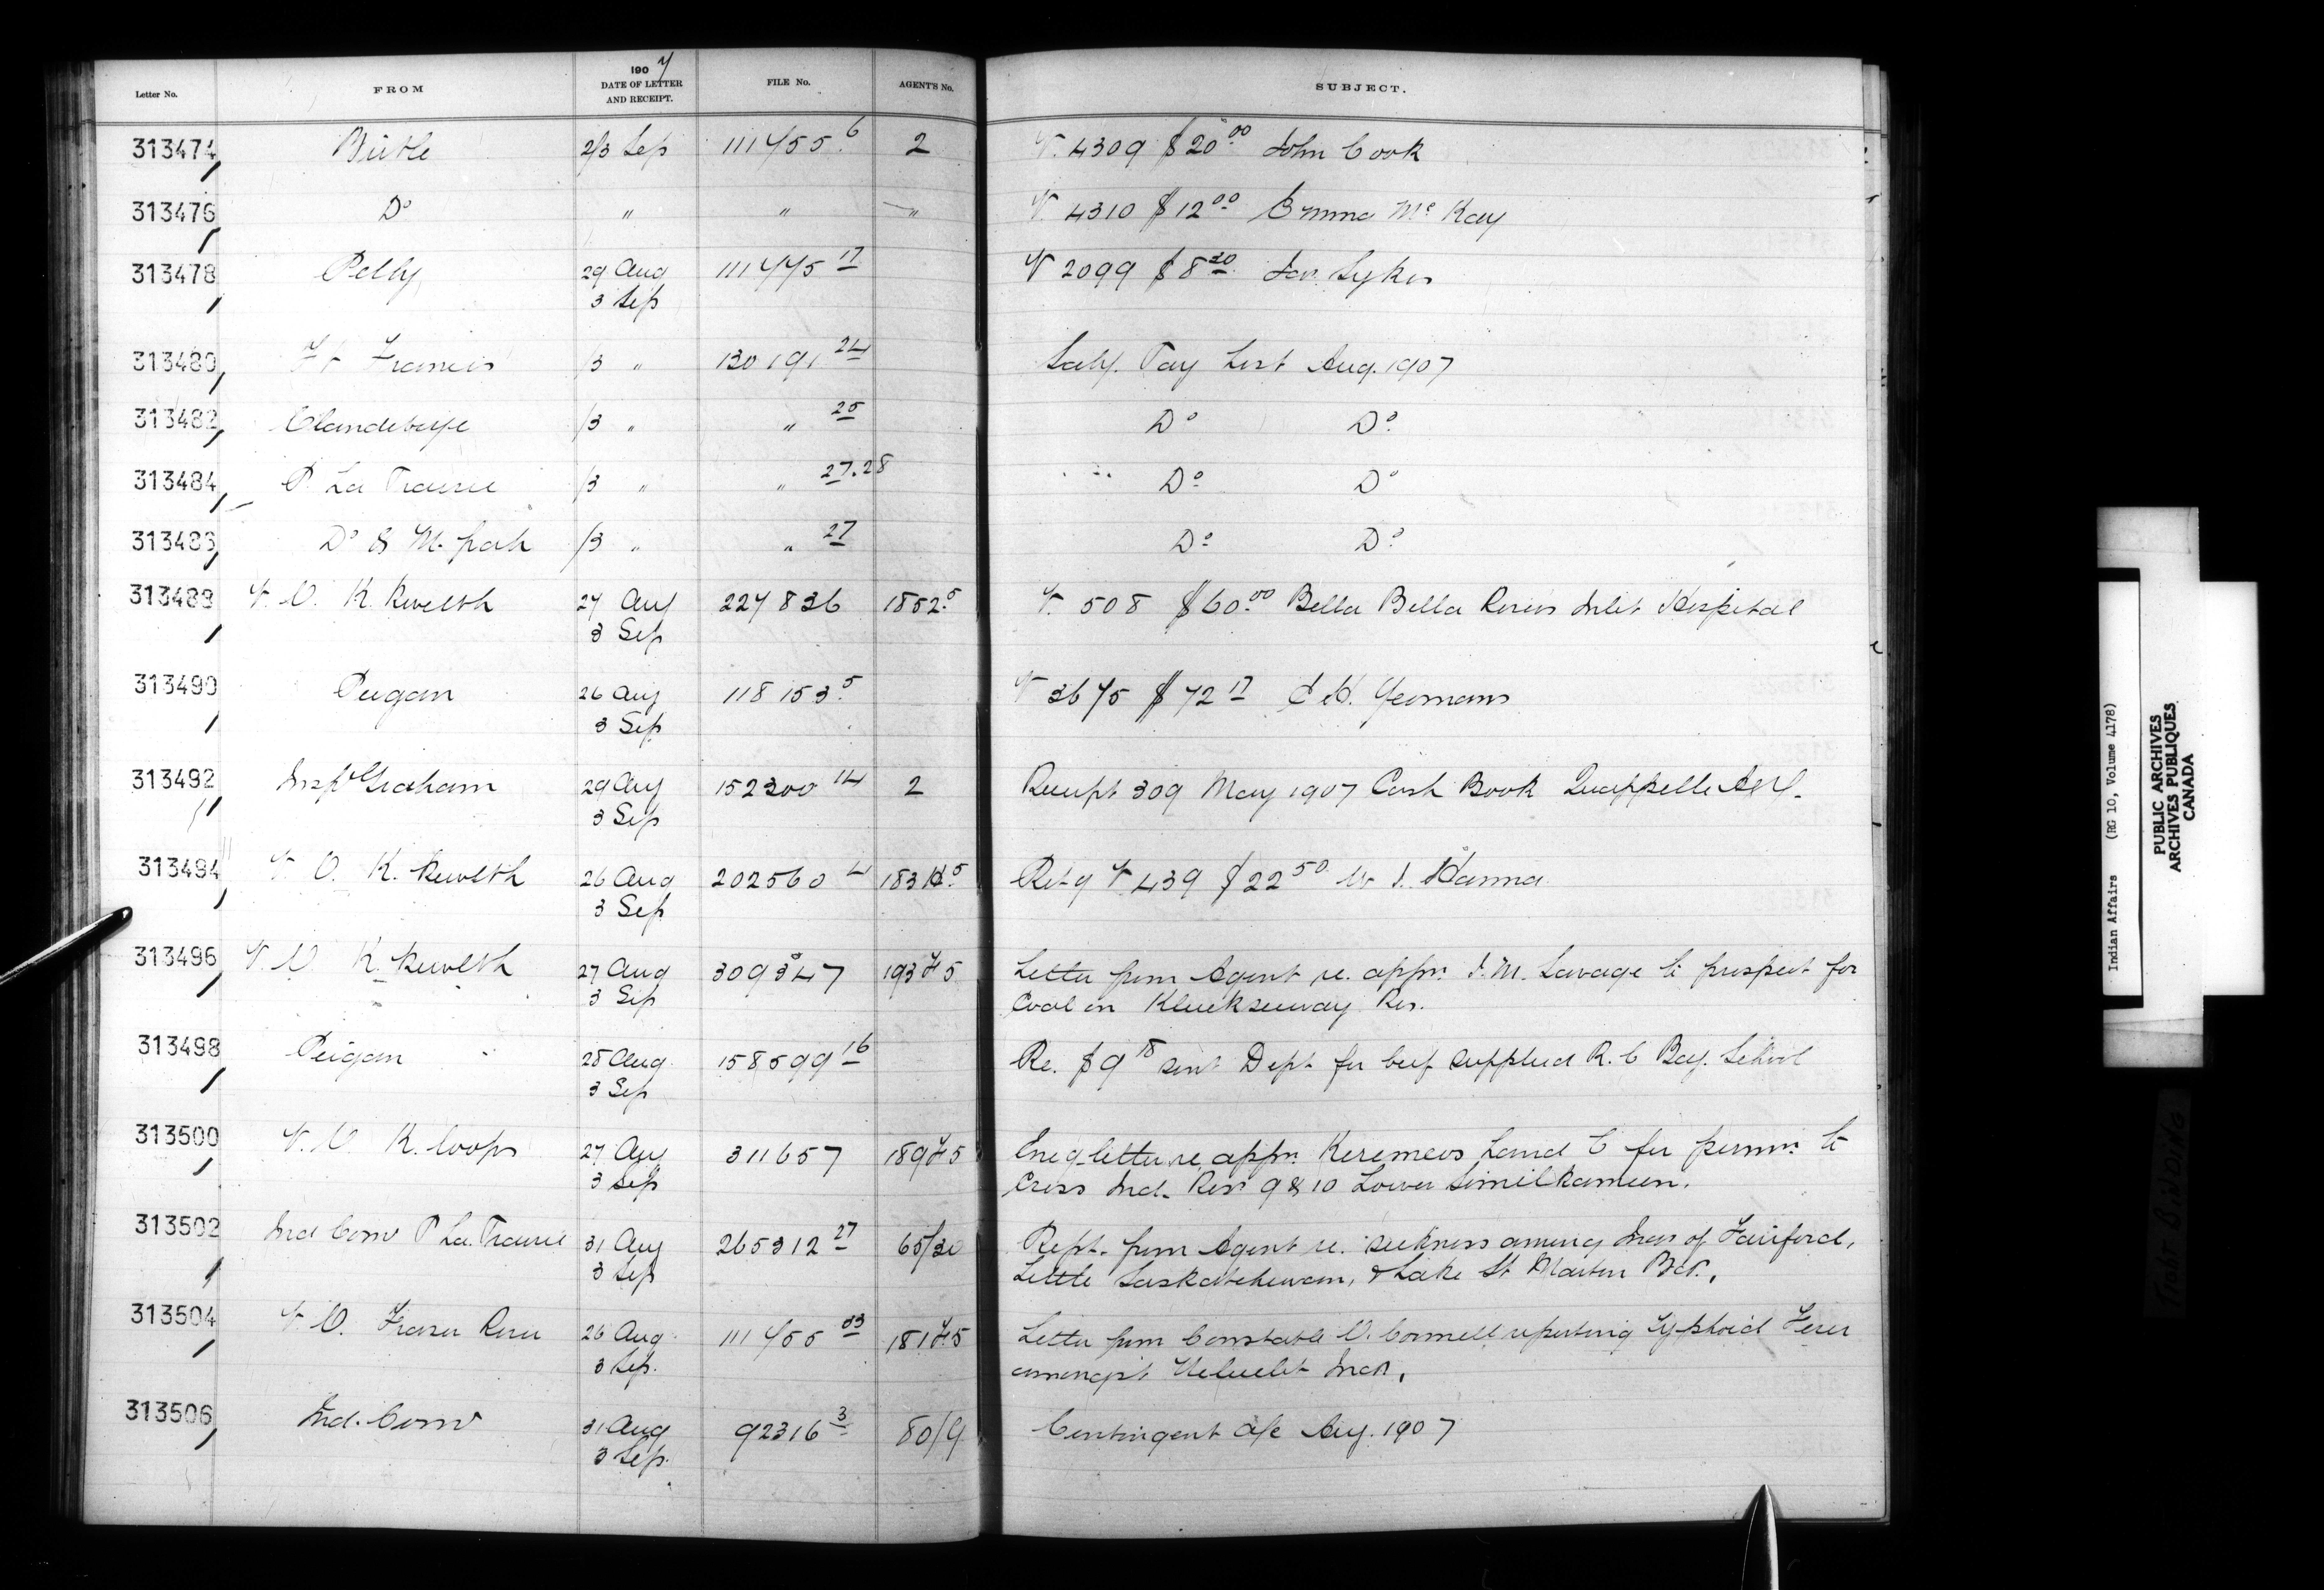 190 7
Letter No. FROM DATE OF LETTER AND RECEIPT. FILE No. AGENT'S No. SUBJECT.
313474 Birtle 2/3 Sep 111455 6 2 V. 4309 $20 00 John Cook
313476 Do " " " V. 4310 $12 00 Emma Mc Kay
313478 Pelly 29 Aug 111445 17 V 2099 $8 20 Sykes
3 Sep
313480 Ft Francis /3 " 130191 24 Saly. Pay List Aug. 1907
313482 Clandeboye /3 " " 25 Do Do
313484 P. La Prairie /3 " " 27.28 Do Do
313486 Do & M. /3 " " 27 Do Do
313488 V. O. K. Kewelth 27 Aug 227836 1852.5 V. 508 $60.00 Bella Bella Rivers Inlet Hospital
3 Sep
313490 Peigan 26 Aug 118153 5 V 3675 $72 17 Yeomans
3 Sep
313492 Insp Graham 29 Aug 152300 14 2 Receipt 309 May 1907 Cash Book Quappelle
3 Sep
313494 V. O. K. Kewelth 26 Aug 202560 4 Retg V 439 $22 50 Hanna
3 Sep
313496 V. O. K. Kewelth 27 Aug 309347 Letter from Agent re. appn. J. M. Savage to prospect for
3 Sep Coal on Res.
313498 Peigan 28 Aug 158599 16 Re. $9 18 sent Dept for beef supplied R. C Boy. School
3 Sep
313500 V. O. K. loops 27 Aug 311657 letter re appn. Keremeos Land C for permn. to
3 Sep Cross Ind. Res 9 & 10 Lower Similkameen.
313502 Ind Comr P La. Prairie 31 Aug 265312 27 65/30 Rept. from Agent re. sickness among Inds of Fairford,
3 Sep Little Saskatchewan, & Lake St Martin Bds.
313504 V. O. Fraser River 26 Aug 111455 Letter from Constable reporting Typhoid Fever
3 Sep. amongst Ucluelet Inds.
313506 Ind. Comr 31 Aug 92316 3 80/9 Contingent a/c Aug. 1907
3 Sep.
Indian Affairs (RG 10, Volume 4178)
PUBLIC ARCHIVES
ARCHIVES PUBLIQUES
CANADA